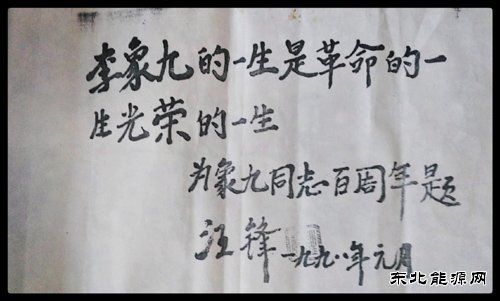 李象九的一生是革命的一
生光荣的一生
为象九同志百周年题
汪锋 一九九八年元月
东北能源网